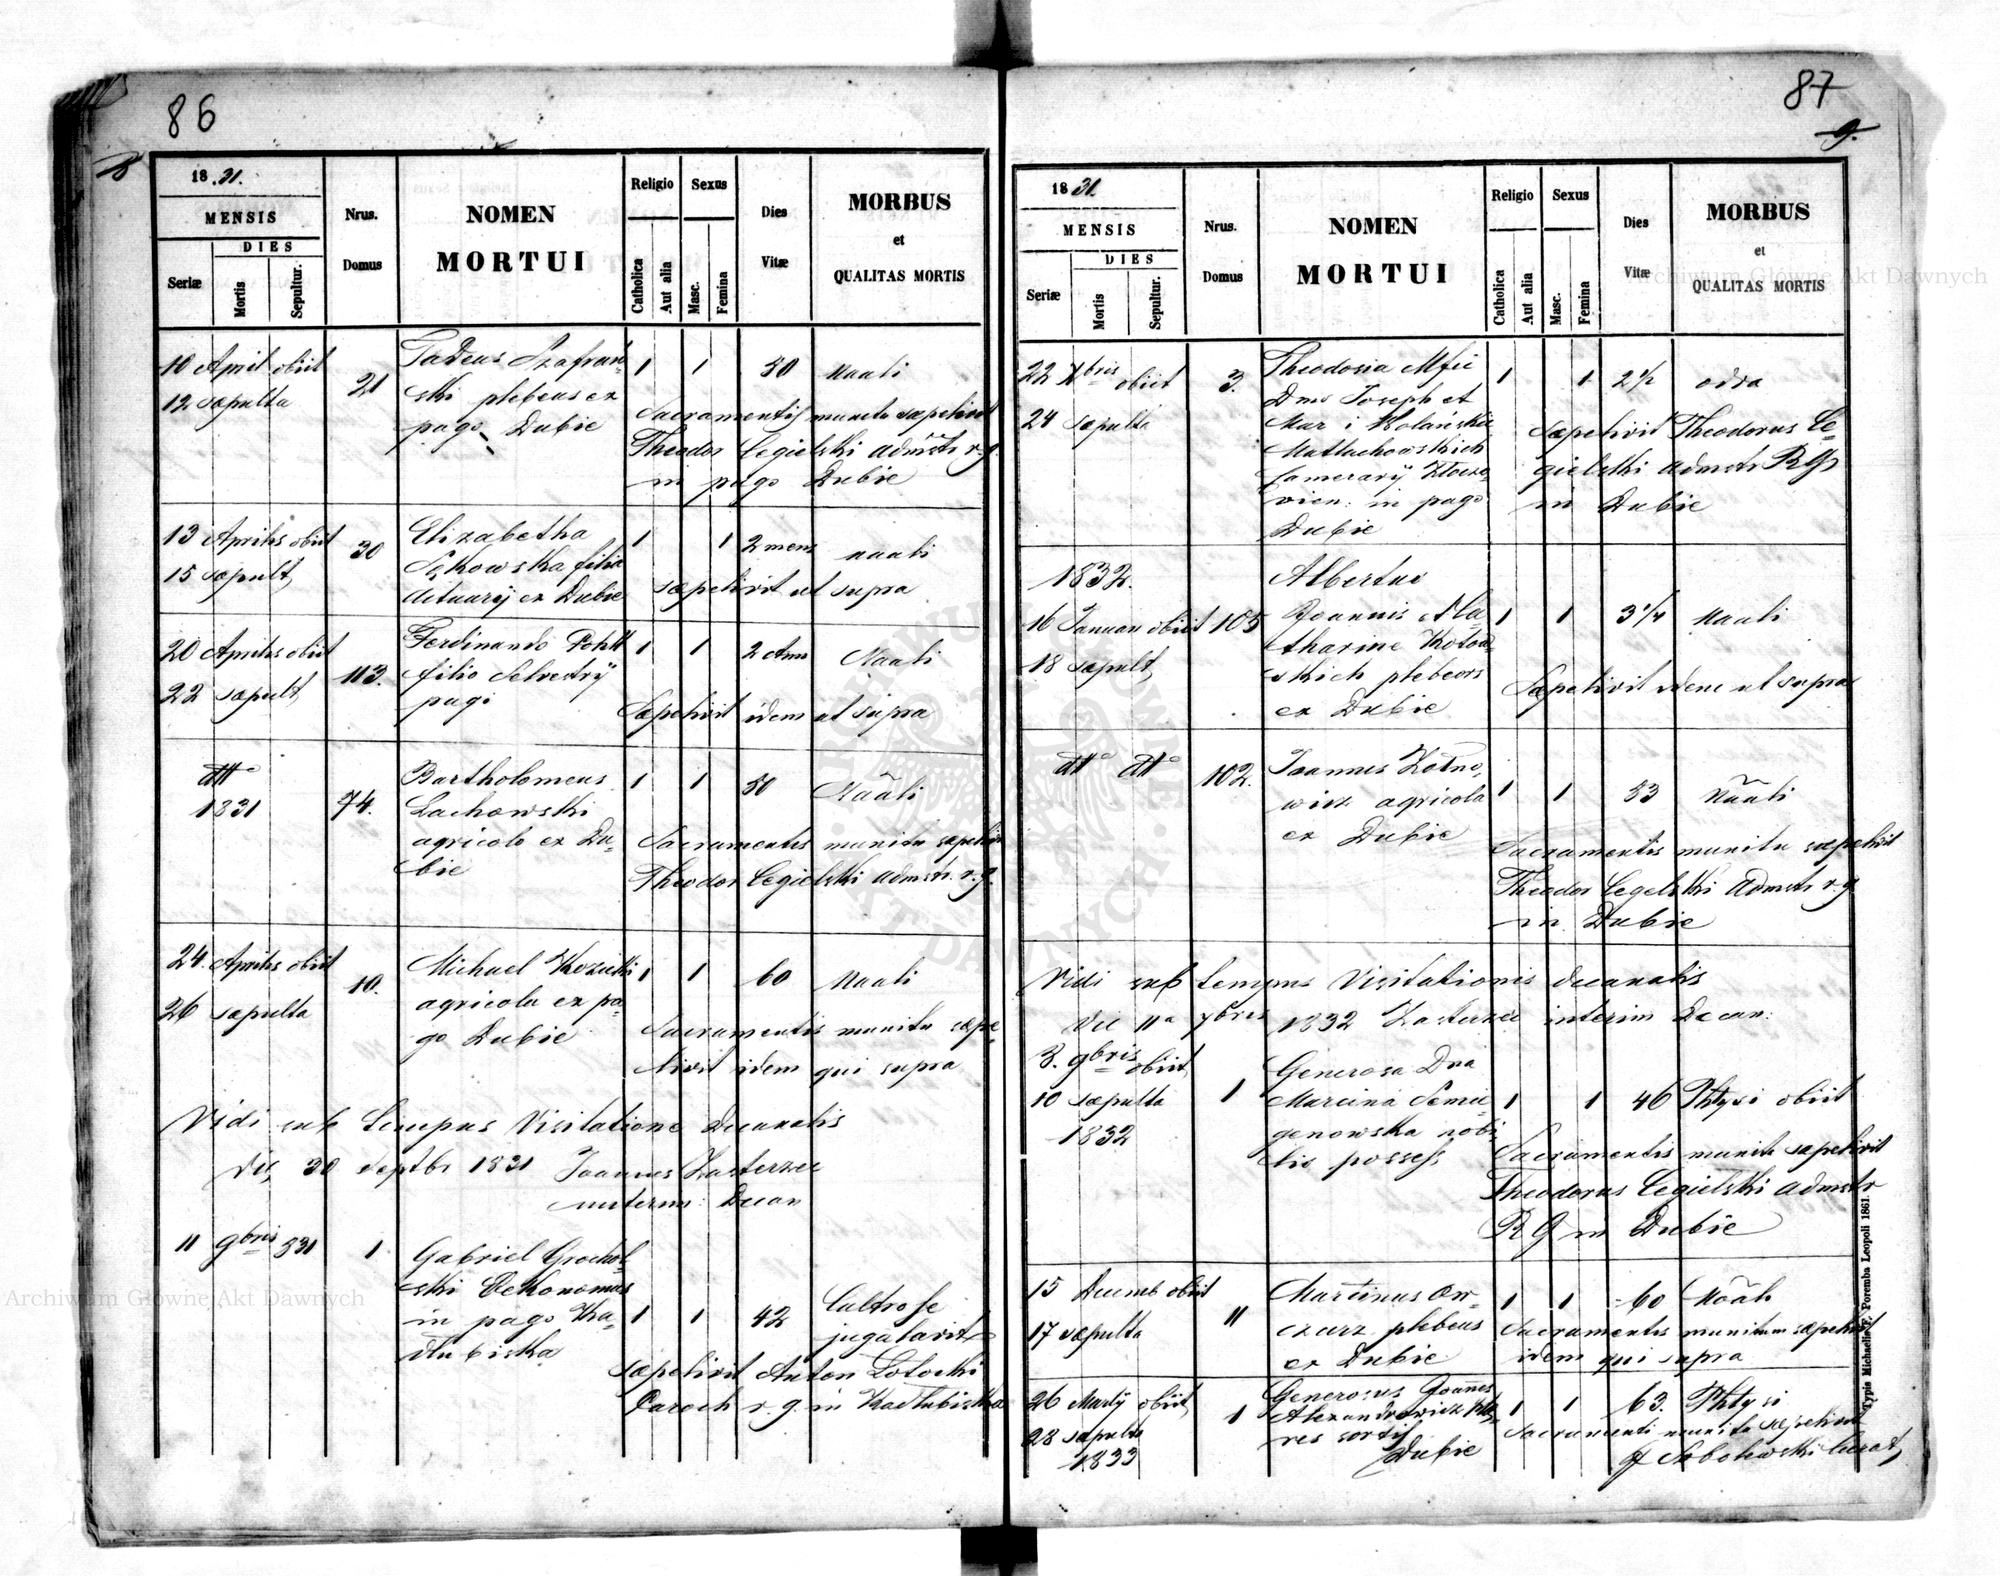 86
18 31.
MENSIS
DIES
Seriæ
Mortis
Sepultur.
Nrus.
Domus
NOMEN
MORTUI
Religio
Catholica
Aut alia
Sexus
Masc.
Femina
Dies
Vitæ
MORBUS
et
QUALITAS MORTIS
10 April obiit
12 sæpulta
21
Tadeus Szafrań-
ski plebeus ex
pago Dubie
1 1 50 Naali
Sacramentis munitu sæpelivit
Theodor Cegielski admstr r. g.
in pago Dubie
13 Aprilis obiit
15 sæpult
30
Elizabetha
Sękowska filia
Actuarÿ ex Dubie
1 1 2 mens naali
sæpelivit ut supra
20 Aprilis obiit
22 sæpult
113.
Ferdinando
filio Selvestrÿ
pagi
1 1 2 Ann Naali
Sæpelivit idem ut supra
dtto
1831
74.
Bartholomeus
Lachowski
agricola ex Du-
bie
1 1 50 Naali
Sacramentis munitu sæpelivit
Theodor Cegielski admstr. r. g.
24. Aprilis obiit
26 sæpulta
10.
Michael Kozicki
agricola ex pa
go Dubie
1 1 60 Naali
Sacramentis munitu sæpe
livit idem qui supra
Vidi sub tempus Visitatione Decanalis
die 30 Septbr 1831 Joannes
interim: Decan
11 9bris 831
1
Gabriel Grochol-
ski Oekonomus
in pago Ka-
dłubiska
1 1 42 Cultro se
jugulavit
sæpelivit Anton Łotocki
Paroch r. g. in Kadłubiska
87
9.
18 31.
MENSIS
DIES
Seriæ
Mortis
Sepultur.
Nrus.
Domus
NOMEN
MORTUI
Religio
Catholica
Aut alia
Sexus
Masc.
Femina
Dies
Vitæ
MORBUS
et
QUALITAS MORTIS
22 Xbris obiit
24 sæpulta
3.
Theodosia Mfici
Dmi Joseph et
Mar i
Camerarÿ Złoczo-
vien: in pago
Dubie
1 1 2 1/2 odra
sæpelivit Theodorus Ce-
gielski admstr RG
in Dubie
1832.
16 Januar obiit
18 sæpult
105
Albertus
Joannis &
tharinæ
skich plebeors
ex Dubie
1 1 3 1/4 Naali
Sæpelivit idem ut supra
dtto dtto
102.
Joannes
wicz agricola
ex Dubie
1 1 53 Naali
Sacramentis munitu sæpelivit
Theodor Cegelski admstr r. g.
in Dubie
Vidi sub tempus Visitationis decanalis
die 11a 7bris 1832 interim Decan:
8. 9bris obiit
10 sæpulta
1832
1
Generosa Dna
Marcina Semi-
genowska nobi
lis possess
1 1 46 Phtysi obiit
Sacramentis munita sæpelivit
Theodorus Cegielski admstr
RG in Dubie
15 Decemb obiit
17 sæpulta
11
Martinus Ow-
czarz plebeus
ex Dubie
1 1 60 Naali
Sacramentis munitum sæpelivit
idem qui supra
26 Martÿ obiit
28 sæpulta
1833
1
Generosus Joannes
Alexandrowicz hæ-
res sortis
Dubie
1 1 63. Phtysi
Sacramenti munitu sæpelivit
Sobolewski Curat,
Typis Michaelis F. Poremba Leopoli 1861.
Archiwum Główne Akt Dawnych
Archiwum Główne Akt Dawnych
ARCHIWUM GŁÓWNE AKT DAWNYCH